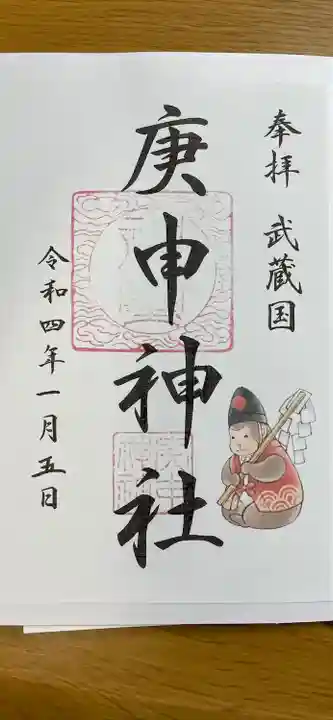 奉拝 武蔵国
庚申神社
令和四年一月五日